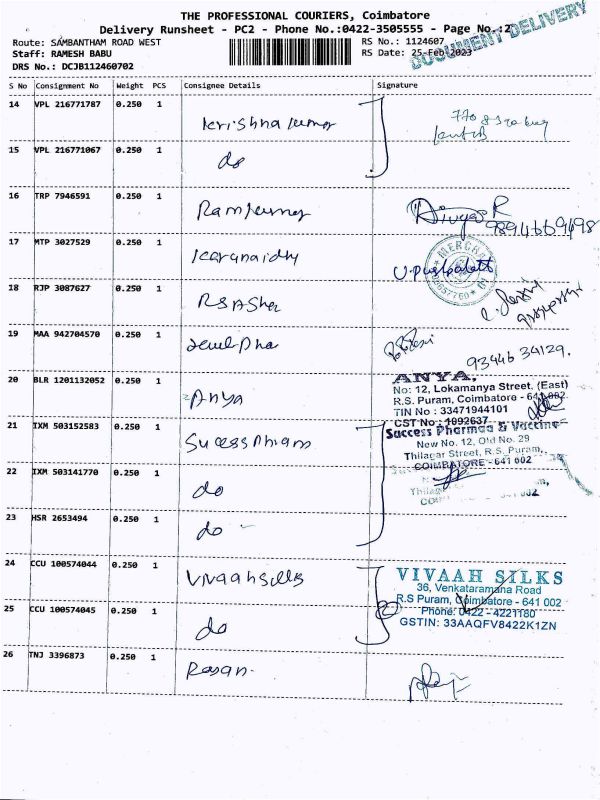 THE PROFESSIONAL COURIERS, Coimbatore
Delivery Runsheet - PC2 - Phone No.:0422-3505555 - Page No.:2
DOCUMENT DELIVERY
Route: SAMBANTHAM ROAD WEST
RS No.: 1124607
Staff: RAMESH BABU
RS Date: 25-Feb-2023
DRS No.: DCJB112460702
S No Consignment No Weight PCS Consignee Details Signature
14 VPL 216771787 0.250 1 Krishna kumar
15 VPL 216771067 0.250 1 do
16 TRP 7946591 0.250 1 Ramkumar
9894669698
17 MTP 3027529 0.250 1 Karunaidhy
MERCHA
18 RJP 3087627 0.250 1 RSASha
19 MAA 942704570 0.250 1
93446 34129.
20 BLR 1201132052 0.250 1 Anya
ANYA,
No: 12, Lokamanya Street, (East)
R.S. Puram, Coimbatore - 641 002
TIN No : 33471944101
CST No : 1092637
21 IXM 503152583 0.250 1 Sucess Pharm
Success Pharmaa & Vaccine
New No. 12, Old No. 29
Thilagar Street, R.S. Puram,
COIMBATORE - 641 002
22 IXM 503141770 0.250 1 do
23 HSR 2653494 0.250 1 do
24 CCU 100574044 0.250 1 Vivaahsilks
VIVAAH SILKS
36, Venkataramana Road
R.S Puram, Coimbatore - 641 002
Phone: 0422 - 4221180
GSTIN: 33AAQFV8422K1ZN
25 CCU 100574045 0.250 1 do
26 TNJ 3396873 0.250 1 Rasan